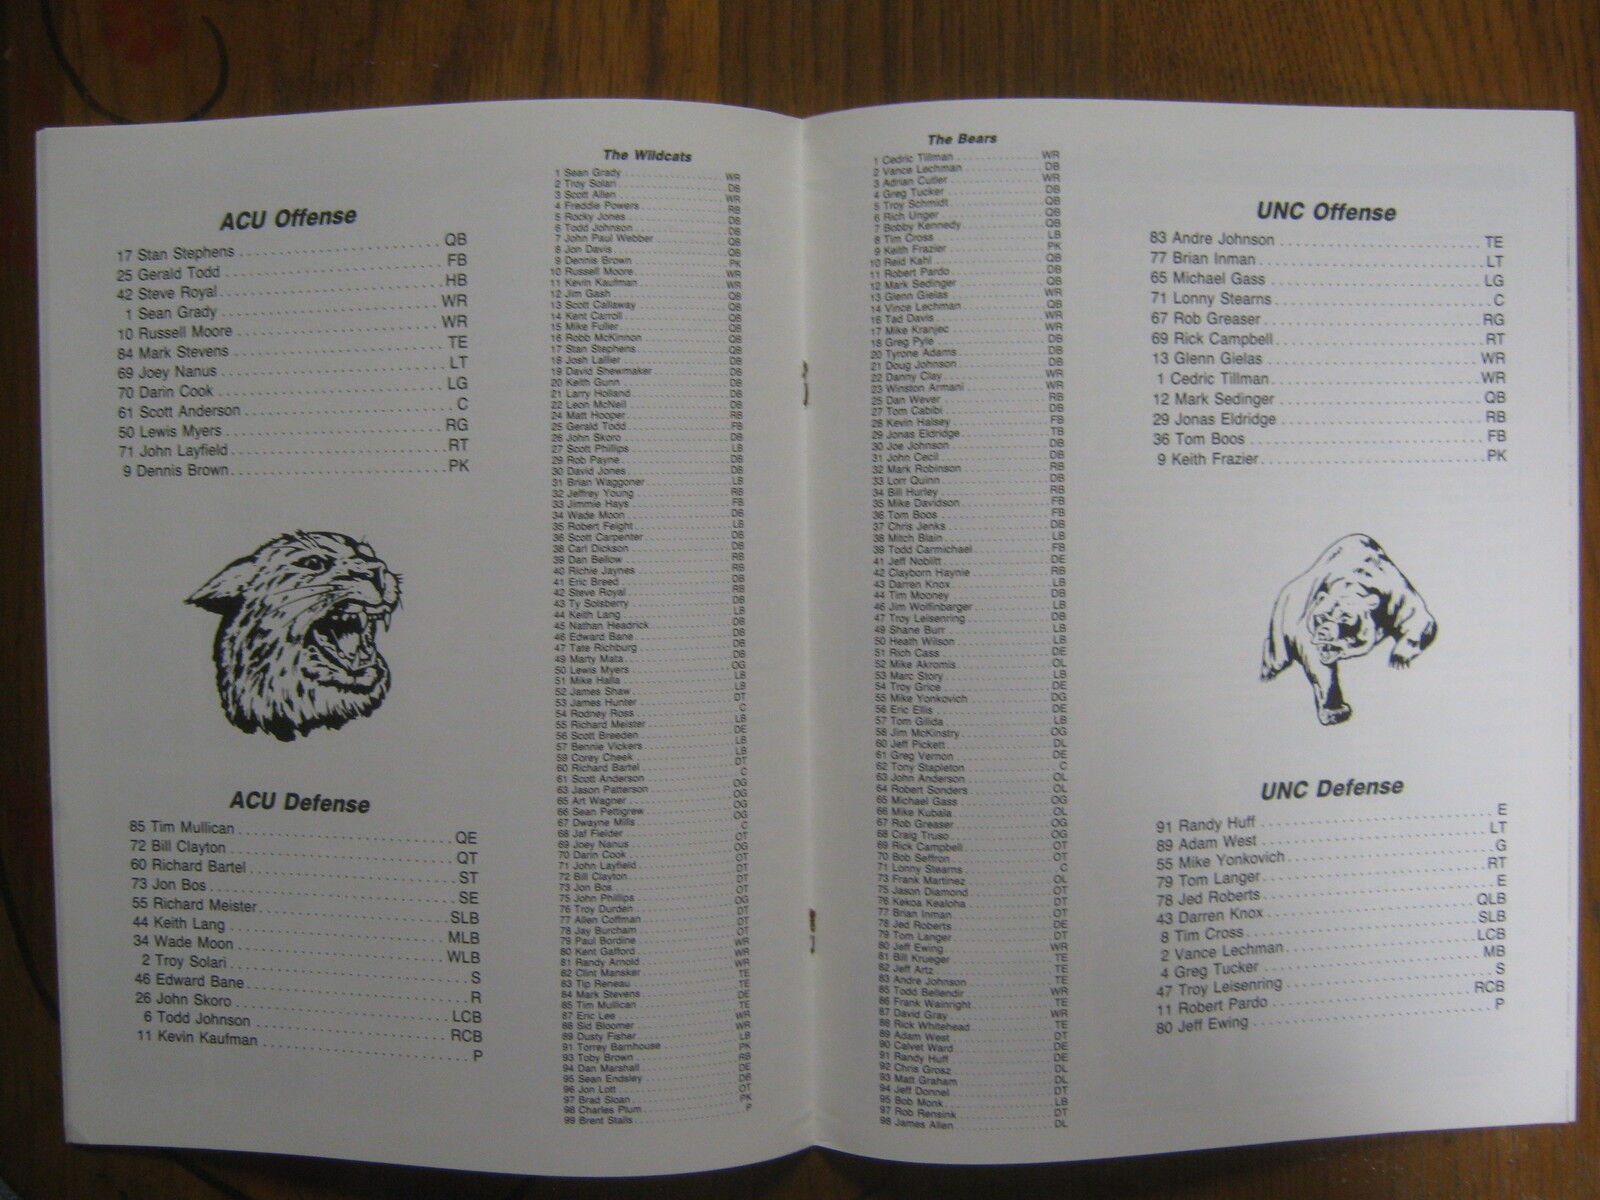 ACU Offense
17 Stan Stephens QB
25 Gerald Todd FB
42 Steve Royal HB
1 Sean Grady WR
10 Russell Moore WR
84 Mark Stevens TE
69 Joey Nanus LT
70 Darin Cook LG
61 Scott Anderson C
50 Lewis Myers RG
71 John Layfield RT
9 Dennis Brown PK
ACU Defense
85 Tim Mullican QE
72 Bill Clayton QT
60 Richard Bartel ST
73 Jon Bos SE
55 Richard Meister SLB
44 Keith Lang MLB
34 Wade Moon WLB
2 Troy Solari S
46 Edward Bane R
26 John Skoro LCB
6 Todd Johnson RCB
11 Kevin Kaufman P
The Wildcats
1 Sean Grady WR
2 Troy Solari DB
3 Scott Allen WR
4 Freddie Powers RB
5 Rocky Jones DB
6 Todd Johnson DB
7 John Paul Webber QB
8 Jon Davis QB
9 Dennis Brown PK
10 Russell Moore WR
11 Kevin Kaufman WR
12 Jim Gash QB
13 Scott Callaway QB
14 Kent Carroll QB
15 Mike Fuller QB
16 Robb McKinnon QB
17 Stan Stephens QB
18 Josh Lallier DB
19 David Shewmaker DB
20 Keith Gunn DB
21 Larry Holland DB
22 Leon McNeil DB
24 Matt Hooper RB
25 Gerald Todd FB
26 John Skoro DB
27 Scott Phillips LB
29 Rob Payne DB
30 David Jones DB
31 Brian Waggoner LB
32 Jeffrey Young RB
33 Jimmie Hays FB
34 Wade Moon DB
35 Robert Feight LB
36 Scott Carpenter DB
38 Carl Dickson DB
39 Dan Bellow RB
40 Richie Jaynes RB
41 Eric Breed DB
42 Steve Royal RB
43 Ty Solsberry DB
44 Keith Lang LB
45 Nathan Headrick DB
46 Edward Bane DB
47 Tate Richburg DB
49 Marty Mata DB
50 Lewis Myers OG
51 Mike Halla LB
52 James Shaw LB
53 James Hunter DT
54 Rodney Ross C
55 Richard Meister LB
56 Scott Breeden DE
57 Bennie Vickers LB
59 Corey Cheek LB
60 Richard Bartel DT
61 Scott Anderson C
63 Jason Patterson OG
65 Art Wagner OG
66 Sean Pettigrew OG
67 Dwayne Mills OG
68 Jaf Fielder C
69 Joey Nanus OT
70 Darin Cook OG
71 John Layfield OT
72 Bill Clayton DT
73 Jon Bos DT
75 John Phillips OT
76 Troy Durden OG
77 Allen Coffman DT
78 Jay Burcham OT
79 Paul Bordine OT
80 Kent Gafford WR
81 Randy Arnold WR
82 Clint Mansker WR
83 Tip Reneau TE
84 Mark Stevens TE
85 Tim Mullican DE
87 Eric Lee TE
88 Sid Bloomer WR
89 Dusty Fisher WR
91 Torrey Barnhouse LB
93 Toby Brown PK
94 Dan Marshall RB
95 Sean Endsley DE
96 Jon Lott DB
97 Brad Sloan OT
98 Charles Plum PK
99 Brent Stalls P
The Bears
1 Cedric Tillman WR
2 Vance Lechman DB
3 Adrian Cutler WR
4 Greg Tucker DB
5 Troy Schmidt QB
6 Rich Unger QB
7 Bobby Kennedy QB
8 Tim Cross LB
9 Keith Frazier PK
10 Reid Kahl QB
11 Robert Pardo DB
12 Mark Sedinger QB
13 Glenn Gielas WR
14 Vince Lechman QB
16 Tad Davis WR
17 Mike Kranjec WR
18 Greg Pyle DB
20 Tyrone Adams DB
21 Doug Johnson DB
22 Danny Clay WR
23 Winston Armani WR
25 Dan Wever RB
27 Tom Cabibi DB
28 Kevin Halsey FB
29 Jonas Eldridge TB
30 Joe Johnson DB
31 John Cecil DB
32 Mark Robinson RB
33 Lorr Quinn DB
34 Bill Hurley RB
35 Mike Davidson FB
36 Tom Boos FB
37 Chris Jenks DB
38 Mitch Blain LB
39 Todd Carmichael FB
41 Jeff Noblitt DE
42 Clayborn Haynie RB
43 Darren Knox LB
44 Tim Mooney DB
46 Jim Wolfinbarger LB
47 Troy Leisenring DB
49 Shane Burr LB
50 Heath Wilson LB
51 Rich Cass DE
52 Mike Akromis OL
53 Marc Story LB
54 Troy Grice DE
55 Mike Yonkovich DG
56 Eric Ellis DE
57 Tom Gilida LB
58 Jim McKinstry OG
60 Jeff Pickett DL
61 Greg Vernon DE
62 Tony Stapleton C
63 John Anderson OL
64 Robert Sonders OL
65 Michael Gass OG
66 Mike Kubala OL
67 Rob Greaser OG
68 Craig Truso OG
69 Rick Campbell OT
70 Bob Seffron OT
71 Lonny Stearns C
73 Frank Martinez OL
75 Jason Diamond OT
76 Kekoa Kealoha DT
77 Brian Inman OT
78 Jed Roberts DE
79 Tom Langer DT
80 Jeff Ewing WR
81 Bill Krueger TE
82 Jeff Artz TE
83 Andre Johnson TE
85 Todd Bellendir WR
86 Frank Wainright TE
87 David Gray WR
88 Rick Whitehead TE
89 Adam West DT
90 Calvet Ward DE
91 Randy Huff DE
92 Chris Grosz DL
93 Matt Graham DL
94 Jeff Donnel DT
95 Bob Monk LB
97 Rob Rensink DT
98 James Allen DL
UNC Offense
83 Andre Johnson TE
77 Brian Inman LT
65 Michael Gass LG
71 Lonny Stearns C
67 Rob Greaser RG
69 Rick Campbell RT
13 Glenn Gielas WR
1 Cedric Tillman WR
12 Mark Sedinger QB
29 Jonas Eldridge RB
36 Tom Boos FB
9 Keith Frazier PK
UNC Defense
91 Randy Huff E
89 Adam West LT
55 Mike Yonkovich G
79 Tom Langer RT
78 Jed Roberts E
43 Darren Knox QLB
8 Tim Cross SLB
2 Vance Lechman LCB
4 Greg Tucker MB
47 Troy Leisenring S
11 Robert Pardo RCB
80 Jeff Ewing P